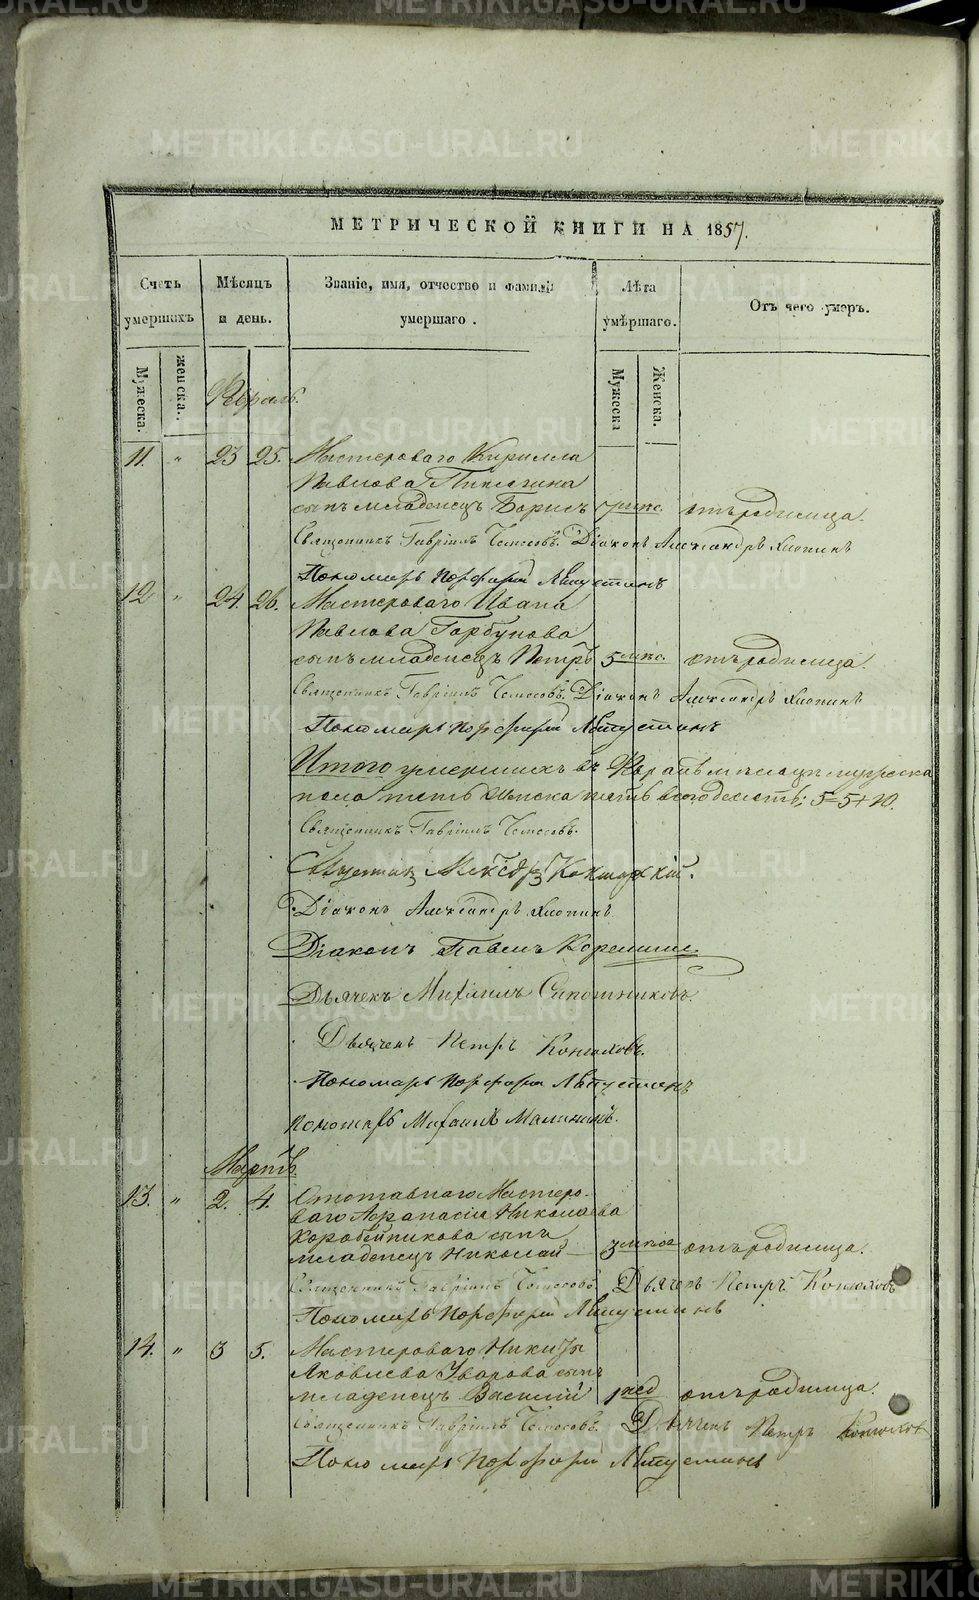 МЕТРИЧЕСКОЙ КНИГИ НА 1857.
Счетъ умершихъ
Мѣсяцъ и день.
Званіе, имя, отчество и фамилія умершаго.
Лѣта умѣршаго.
Отъ чего умеръ.
Мужеска.
женска.
Мужеска
Женска.
Февраль.
11. " 23 25. Мастероваго Кирилла
Павлова
сынъ младенецъ Борисъ 7 мѣс. отъ родимца.
Священникъ Гавріилъ Діаконъ Александръ Хлопинъ
Пономарь Порфирій
12 " 24. 26. Мастероваго Ивана
Павлова Горбунова
сынъ младенецъ Петръ 5 мѣс. отъ родимца.
Священникъ Гавріилъ Діаконъ Александръ Хлопинъ
Пономарь Порфирій
Итого умершихъ въ Февралѣ мѣсяцѣ мужеска
пола пять женска пять всего десять; 5=5+10.
Священникъ Гавріилъ
Діаконъ Александръ Хлопинъ
Діаконъ Павелъ
Дьячекъ Михаилъ Сапожниковъ.
Дьячекъ Петръ Конюховъ.
Пономарь Порфирій
Пономарь Михаилъ Малининъ.
Мартъ.
13. " 2. 4. Отставнаго Мастеро-
ваго Афанасія Николаева
Коробейникова сынъ
младенецъ Николай 3 мѣс отъ родимца.
Священникъ Гавріилъ Дьячекъ Петръ Конюховъ
Пономарь Порфирій
14. " 3 5. Мастероваго Никиты
Яковлева Уварова сынъ
младенецъ Василій 1 нед отъ родимца.
Священникъ Гавріилъ Дьячекъ Петръ Конюховъ
Пономарь Порфирій
METRIKI.GASO-URAL.RU